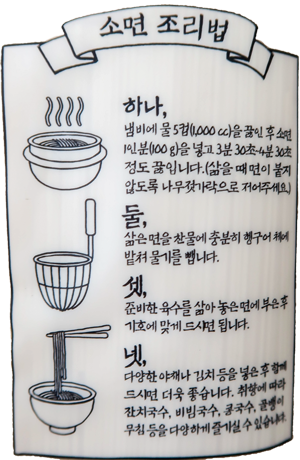 소면 조리법
하나,
냄비에 물 5컵(1,000 cc)을 끓인 후 소면
1인분(100g)을 넣고 3분 30초~4분 30초
정도 끓입니다.(삶을 때 면이 붙지
않도록 나무젓가락으로 저어주세요.)
둘,
삶은 면을 찬물에 충분히 헹구어 체에
밭쳐 물기를 뺍니다.
셋,
준비한 육수를 삶아 놓은 면에 부은 후
기호에 맞게 드시면 됩니다.
넷,
다양한 야채나 김치 등을 넣은 후 함께
드시면 더욱 좋습니다. 취향에 따라
잔치국수, 비빔국수, 콩국수, 골뱅이
무침 등을 다양하게 즐기실 수 있습니다.